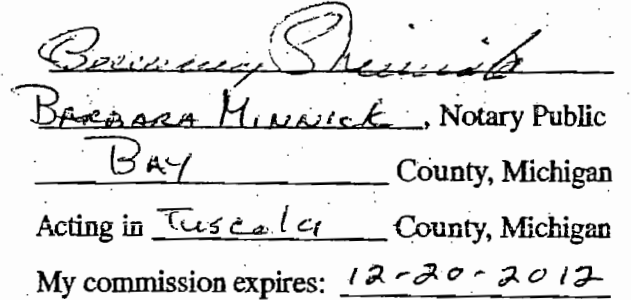 BARBARA MINNICK, Notary Public
BAY County, Michigan
Acting in Tuscola County, Michigan
My commission expires: 12-20-2012